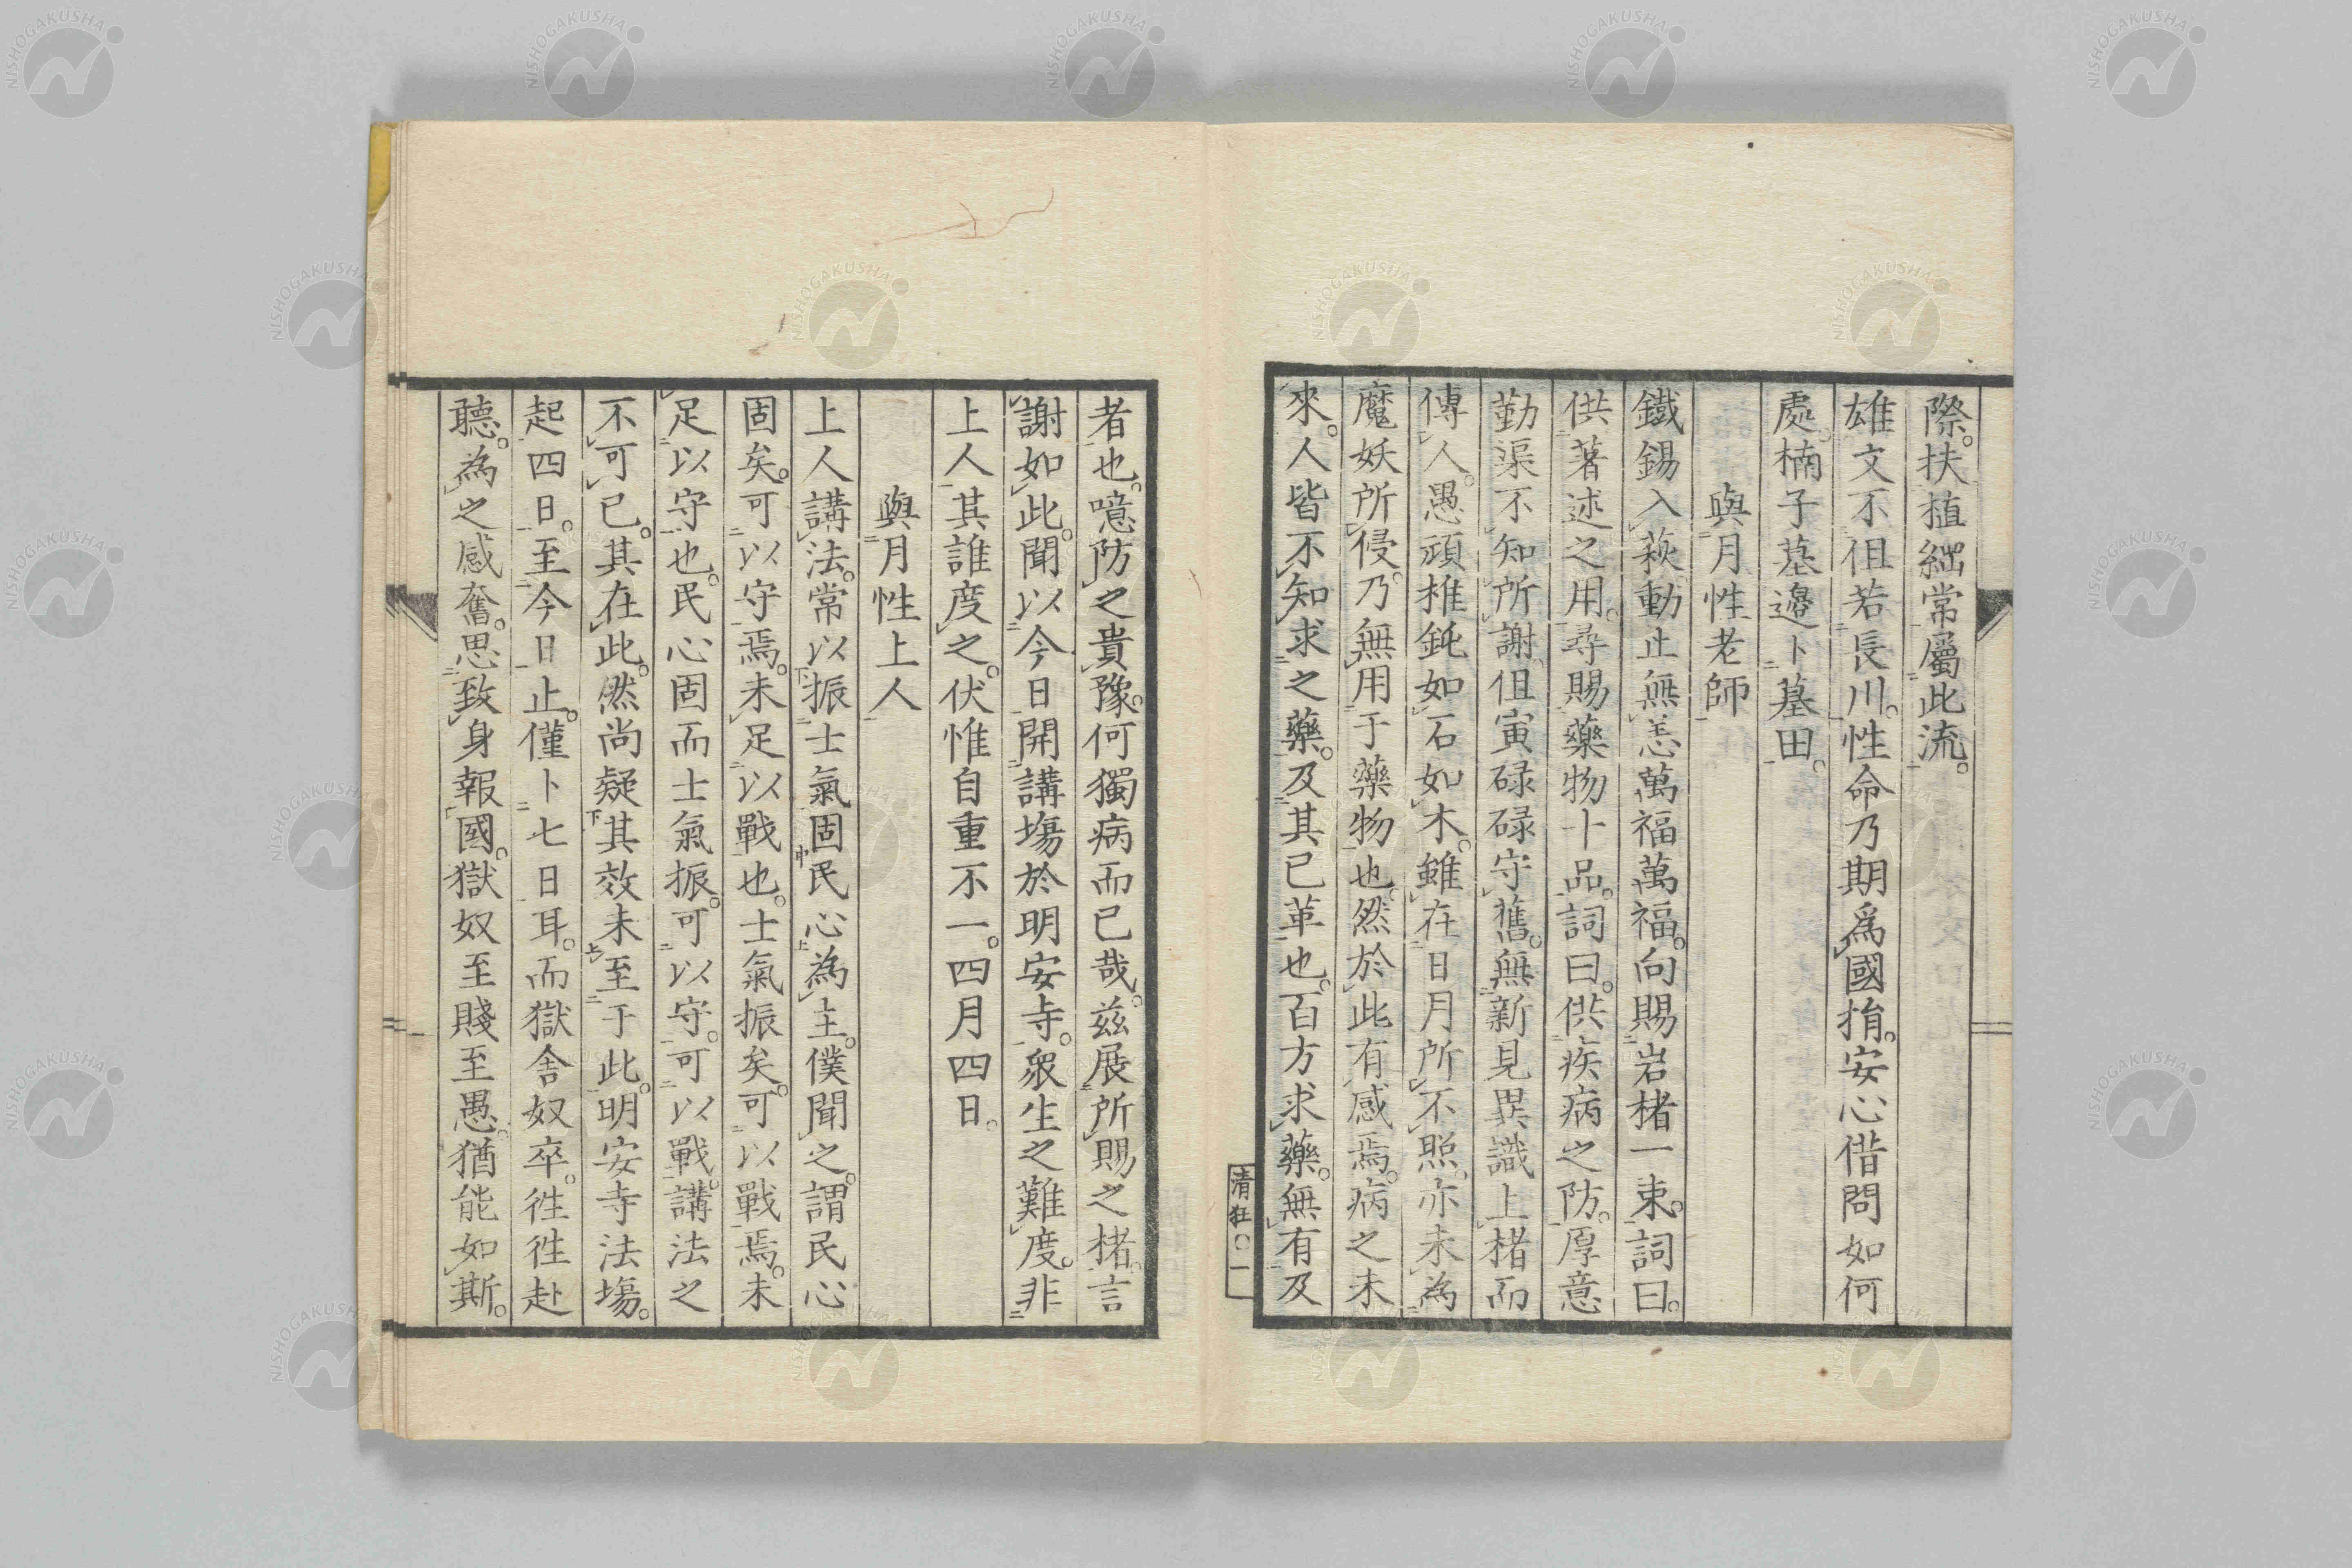 際。扶植綱常屬此流。
雄文不但若長川。性命乃期爲國捐。安心借問如何
處。楠子墓邉卜墓田。
與月性老師
鐵錫入萩動止無恙萬福萬福。向賜岩楮一束。詞曰。
供著述之用。尋賜藥物十品。詞曰。供疾病之防。厚意
勤渠不知所謝但寅碌碌守舊。無新見異識上楮而
傳人。愚頑推鈍如石如木。雖在日月所不照。亦未為
魔妖所侵。乃無用于藥物也。然於此有感焉。病之未
來。人皆不知求之藥。及其已革也。百方求藥。無有及
清狂〇一
者也。噫防之貴豫。何獨病而已哉。兹展所賜之楮。言
謝如此。聞以今日開講塲於明安寺。衆生之難度。非
上人其誰度之。伏惟自重不一。四月四日。
與月性上人
上人講法。常以振士氣固民心為主。僕聞之。謂民心
固矣。可以守焉。未足以戰也。士氣振矣。可以戰焉。未
足以守也。民心固而士氣振。可以守。可以戰。講法之
不可已。其在此。然尚疑其效未至于此。明安寺法塲。
起四日。至今日止。僅卜七日耳。而獄舎奴卒。徃徃赴
聽。為之感奮。思致身報國。獄奴至賤至愚。猶能如斯。
NISHOGAKUSHA